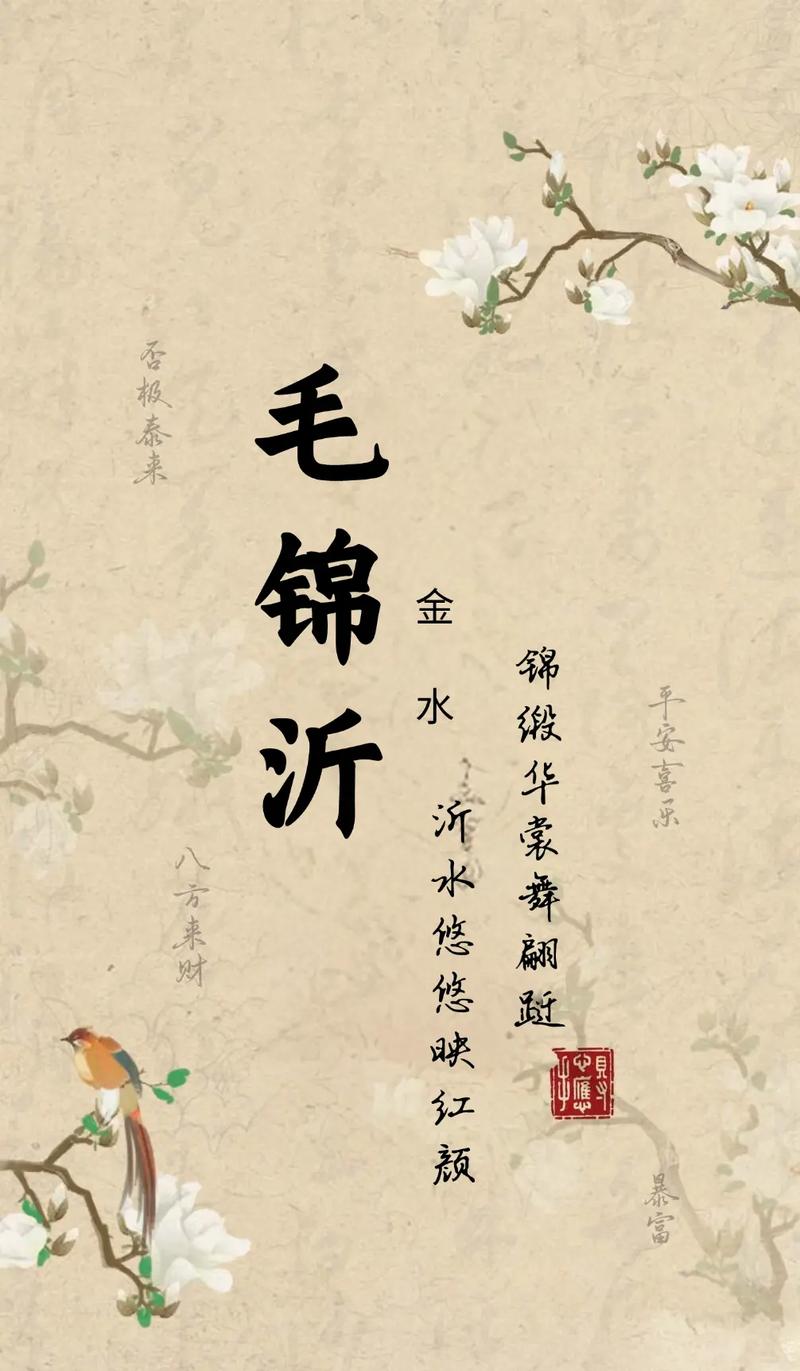 毛锦沂
金水
锦缎华裳舞翩跹
沂水悠悠映红颜
否极泰来
平安喜乐
八方来财
暴富